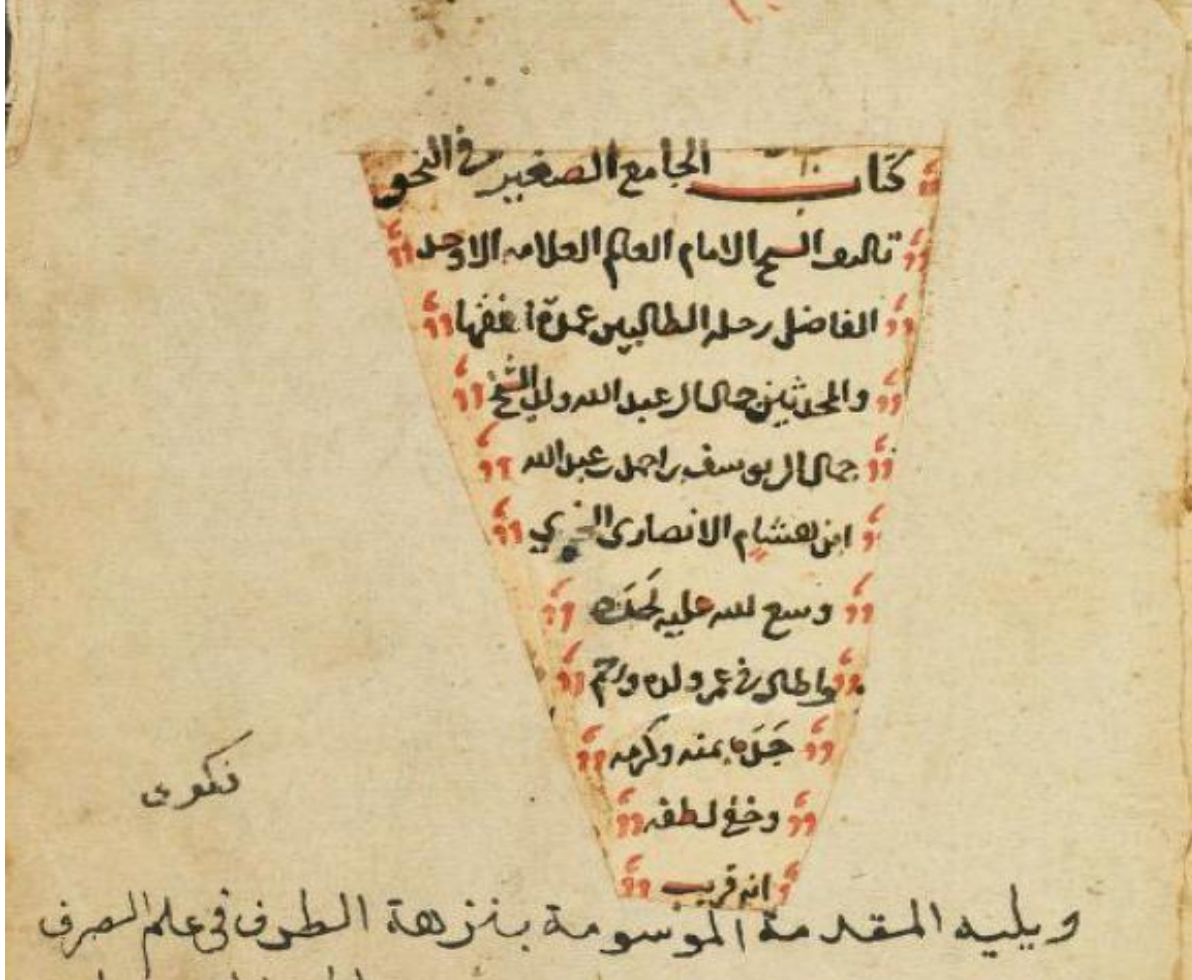 كتاب الجامع الصغير في النحو
تاليف الشيخ الامام العالم العلامه الاوحد
الفاضل رحله الطالبين عمدة
والمحدثين جمال الدين عبد الله ولد الشيخ
جمال الدين يوسف بن احمد بن عبد الله
ابن هشام الانصاري
وسع الله عليه لحده
واطال في عمر ولده ورحم
جده بمنه وكرمه
وخفي لطفه
انه قريب
ويليه المقدمة الموسومة بنزهة الطرف في علم الصرف